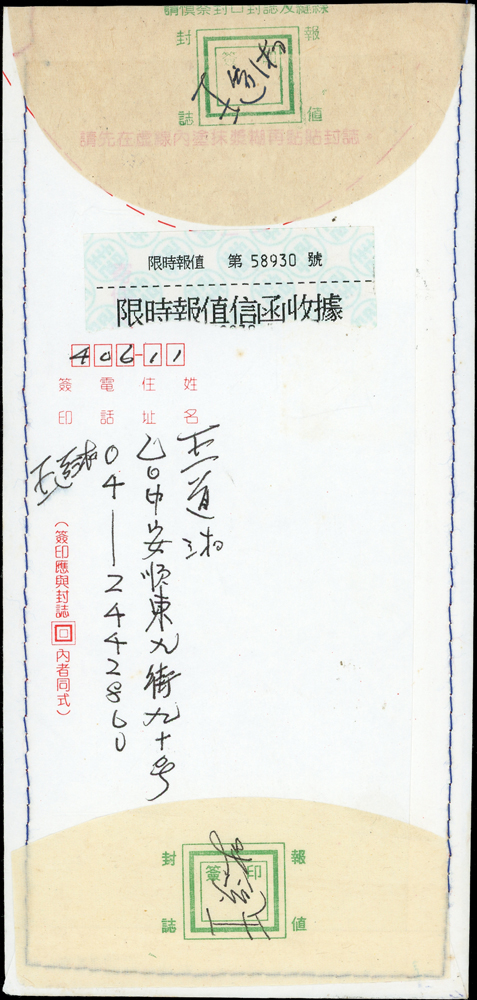 請慎祭封口封誌及縫線
封 報
誌 值
請先在虛線內塗抹漿糊再黏貼封誌。
限時報值 第 58930 號
限時報值信函收據
406-11
姓名
王道湘
住址
台中安順東九街九十号
電話
04-2442860
簽印
王道湘
(簽印應與封誌回內者同式)
封 報
簽 印
誌 值